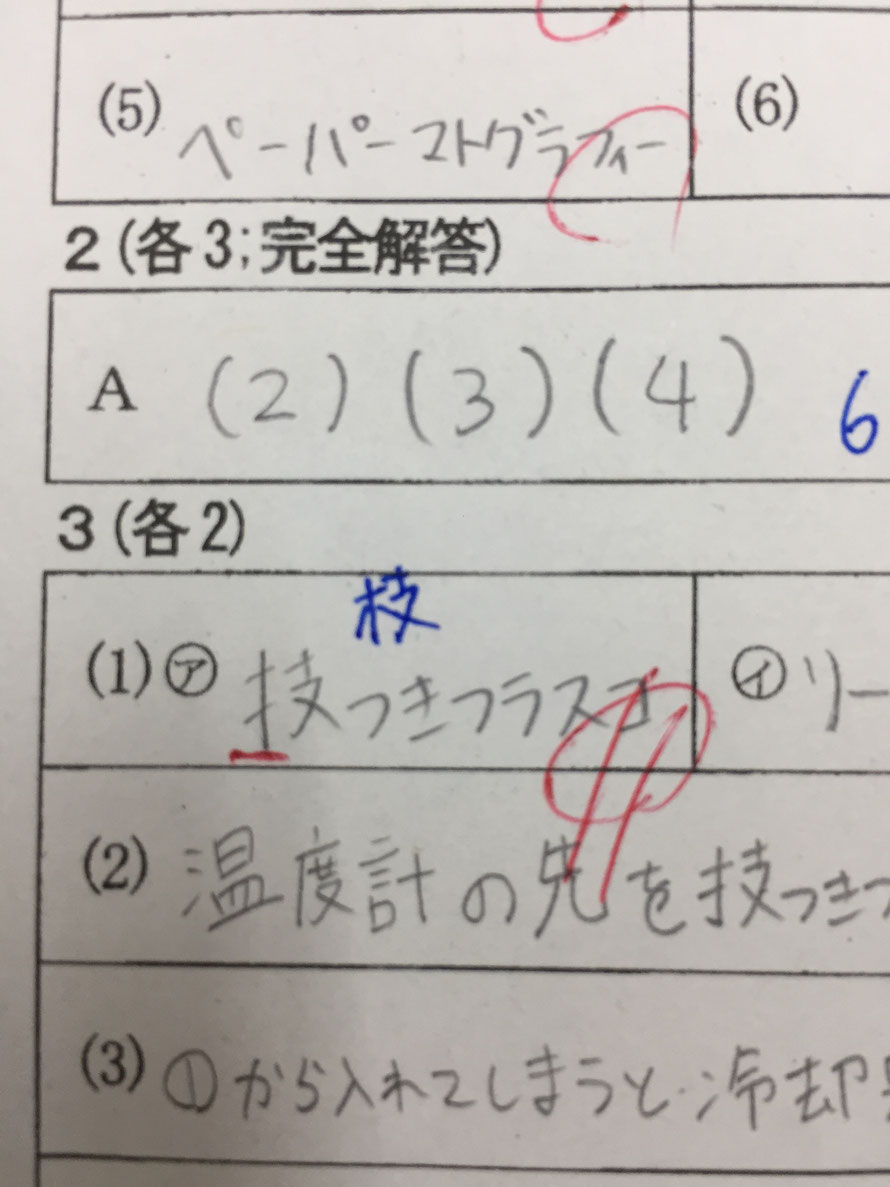 (5) ペーパーマトグラフィー (6)
2 (各3;完全解答)
A (2) (3) (4) 6
3 (各2)
枝
(1) ㋐ 技つきフラスコ ㋑ リー
(2) 温度計の先を技つきフ
(3) ①から入れてしまうと冷却